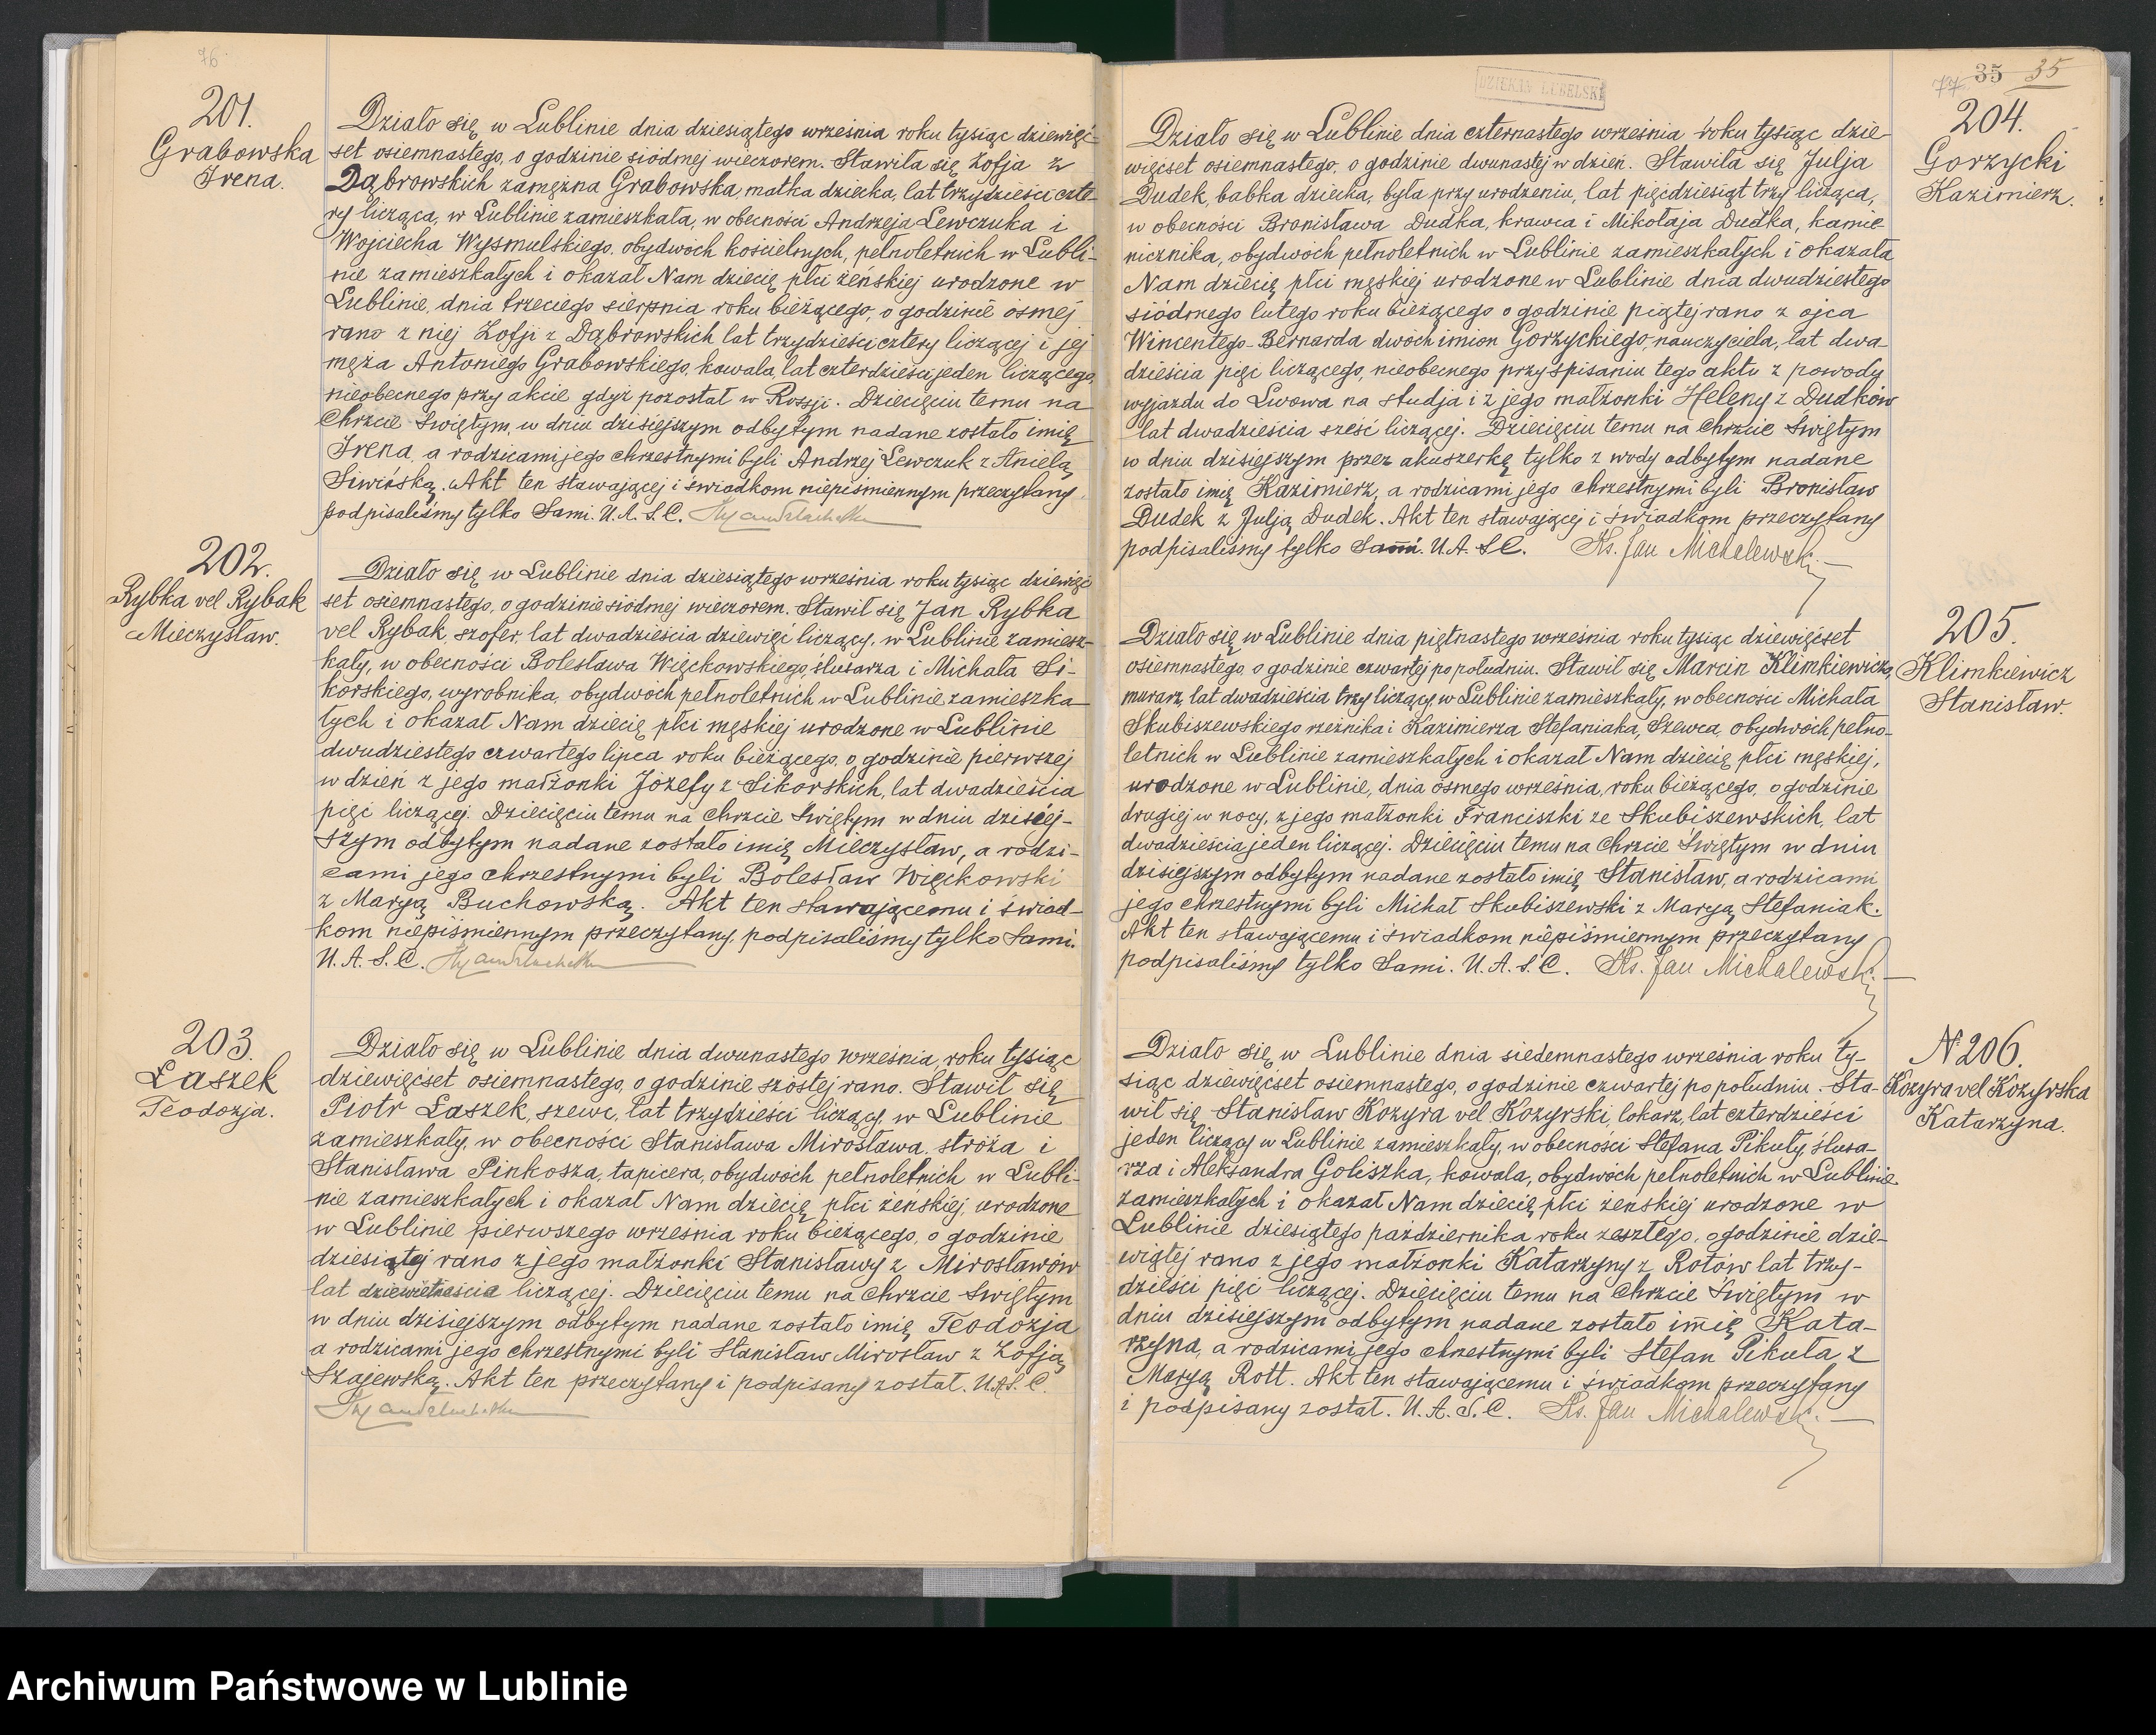 76
201.
Grabowska
Irena.
Działo się w Lublinie dnia dziesiątego września roku tysiąc dziewięć-
set osiemnastego, o godzinie siódmej wieczorem. Stawiła się Zofja z
Dąbrowskich zamężna Grabowska, matka dziecka, lat trzydzieści czte-
ry licząca, w Lublinie zamieszkała, w obecności Andrzeja Lewczuka i
Wojciecha Wysmulskiego, obydwóch kościelnych, pełnoletnich w Lubli-
nie zamieszkałych i okazał Nam dziecię płci żeńskiej urodzone w
Lublinie, dnia trzeciego sierpnia roku bieżącego, o godzinie ósmej
rano z niej Zofji z Dąbrowskich lat trzydzieści cztery liczącej i jej
męża Antoniego Grabowskiego, kowala, lat czterdzieści jeden liczącego,
nieobecnego przy akcie gdyż pozostał w Rossji. Dziecięciu temu na
Chrzcie Świętym, w dniu dzisiejszym odbytym nadane zostało imię
Irena, a rodzicami jego chrzestnymi byli Andrzej Lewczuk z Anielą
Siwińską. Akt ten stawającej i świadkom niepiśmiennym przeczytany
podpisaliśmy tylko Sami. U.A.S.C.
202.
Rybka vel Rybak
Mieczysław.
Działo się w Lublinie dnia dziesiątego września roku tysiąc dziewięć
set osiemnastego, o godzinie siódmej wieczorem. Stawił się Jan Rybka
vel Rybak, szofer, lat dwadzieścia dziewięć liczący, w Lublinie zamiesz-
kały, w obecności Bolesława Więckowskiego, ślusarza i Michała Si-
korskiego, wyrobnika, obydwóch pełnoletnich w Lublinie zamieszka-
łych i okazał Nam dziecię płci męskiej urodzone w Lublinie
dwudziestego czwartego lipca roku bieżącego, o godzinie pierwszej
w dzień z jego małżonki Józefy z Sikorskich, lat dwadzieścia
pięć liczącej. Dziecięciu temu na Chrzcie Świętym w dniu dzisiej-
szym odbytym nadane zostało imię Mieczysław, a rodzi-
cami jego chrzestnymi byli Bolesław Więckowski
z Maryą Buchowską. Akt ten stawającemu i świad-
kom niepiśmiennym przeczytany, podpisaliśmy tylko Sami.
U.A.S.C.
203.
Łaszek
Teodozja.
Działo się w Lublinie dnia dwunastego września, roku tysiąc
dziewięćset osiemnastego, o godzinie szóstej rano. Stawił się
Piotr Łaszek, szewc, lat trzydzieści liczący, w Lublinie
zamieszkały, w obecności Stanisława Mirosława, stróża i
Stanisława Pinkosza, tapicera, obydwóch pełnoletnich w Lubli-
nie zamieszkałych i okazał Nam dziecię płci żeńskiej, urodzone
w Lublinie pierwszego września roku bieżącego, o godzinie
dziesiątej rano z jego małżonki Stanisławy z Mirosławów
lat dziewiętnaście liczącej. Dziecięciu temu na Chrzcie Świętym
w dniu dzisiejszym odbytym nadane zostało imię Teodozja
a rodzicami jego chrzestnymi byli Stanisław Mirosław z Zofją
Szajewską. Akt ten przeczytany i podpisany został. U.A.S.C.
DZIEKAN LUBELSKI
77. 35 35
204.
Gorzycki
Kazimierz.
Działo się w Lublinie dnia czternastego września roku tysiąc dzie-
więćset osiemnastego, o godzinie dwunastej w dzień. Stawiła się Julja
Dudek, babka dziecka, była przy urodzeniu, lat pięćdziesiąt trzy licząca,
w obecności Bronisława Dudka, krawca i Mikołaja Dudka, kamie-
nicznika, obydwóch pełnoletnich w Lublinie zamieszkałych i okazała
Nam dziecię płci męskiej urodzone w Lublinie dnia dwudziestego
siódmego lutego roku bieżącego o godzinie piątej rano z ojca
Wincentego-Bernarda dwóch imion Gorzyckiego, nauczyciela, lat dwa-
dzieścia pięć liczącego, nieobecnego przy spisaniu tego aktu z powodu
wyjazdu do Lwowa na studja i z jego małżonki Heleny z Dudków
lat dwadzieścia sześć liczącej. Dziecięciu temu na Chrzcie Świętym
w dniu dzisiejszym przez akuszerkę tylko z wody odbytym nadane
zostało imię Kazimierz, a rodzicami jego chrzestnymi byli Bronisław
Dudek z Julją Dudek. Akt ten stawającej i świadkom przeczytany
podpisaliśmy tylko Sami. U.A.S.C. Ks. Jan Michalewski
205.
Klimkiewicz
Stanisław.
Działo się w Lublinie dnia piętnastego września roku tysiąc dziewięćset
osiemnastego, o godzinie czwartej po południu. Stawił się Marcin Klimkiewicz,
murarz, lat dwadzieścia trzy liczący, w Lublinie zamieszkały, w obecności Michała
Skubiszewskiego rzeźnika i Kazimierza Stefaniaka, Szewca, obydwóch pełno-
letnich w Lublinie zamieszkałych i okazał Nam dziecię płci męskiej,
urodzone w Lublinie, dnia ósmego września, roku bieżącego, o godzinie
drugiej w nocy, z jego małżonki Franciszki ze Skubiszewskich, lat
dwadzieścia jeden liczącej. Dziecięciu temu na Chrzcie Świętym w dniu
dzisiejszym odbytym nadane zostało imię Stanisław, a rodzicami
jego chrzestnymi byli Michał Skubiszewski z Maryą Stefaniak.
Akt ten stawającemu i świadkom niepiśmiennym przeczytany
podpisaliśmy tylko Sami. U.A.S.C. Ks. Jan Michalewski
N 206.
Kozyra vel Kozyrska
Katarzyna.
Działo się w Lublinie dnia siedemnastego września roku ty-
siąc dziewięćset osiemnastego, o godzinie czwartej po południu. Sta-
wił się Stanisław Kozyra vel Kozyrski, lokarz, lat czterdzieści
jeden liczący w Lublinie zamieszkały, w obecności Stefana Pikuły, ślusa-
rza i Aleksandra Goliszka, kowala, obydwóch pełnoletnich w Lublinie
zamieszkałych i okazał Nam dziecię płci żeńskiej urodzone w
Lublinie dziesiątego października roku zeszłego, o godzinie dzie-
wiątej rano z jego małżonki Katarzyny z Rotów lat trzy-
dzieści pięć liczącej. Dziecięciu temu na Chrzcie Świętym w
dniu dzisiejszym odbytym nadane zostało imię Kata-
rzyna, a rodzicami jego chrzestnymi byli Stefan Pikuła z
Maryą Rott. Akt ten stawającemu i świadkom przeczytany
i podpisany został. U.A.S.C. Ks. Jan Michalewski
Archiwum Państwowe w Lublinie